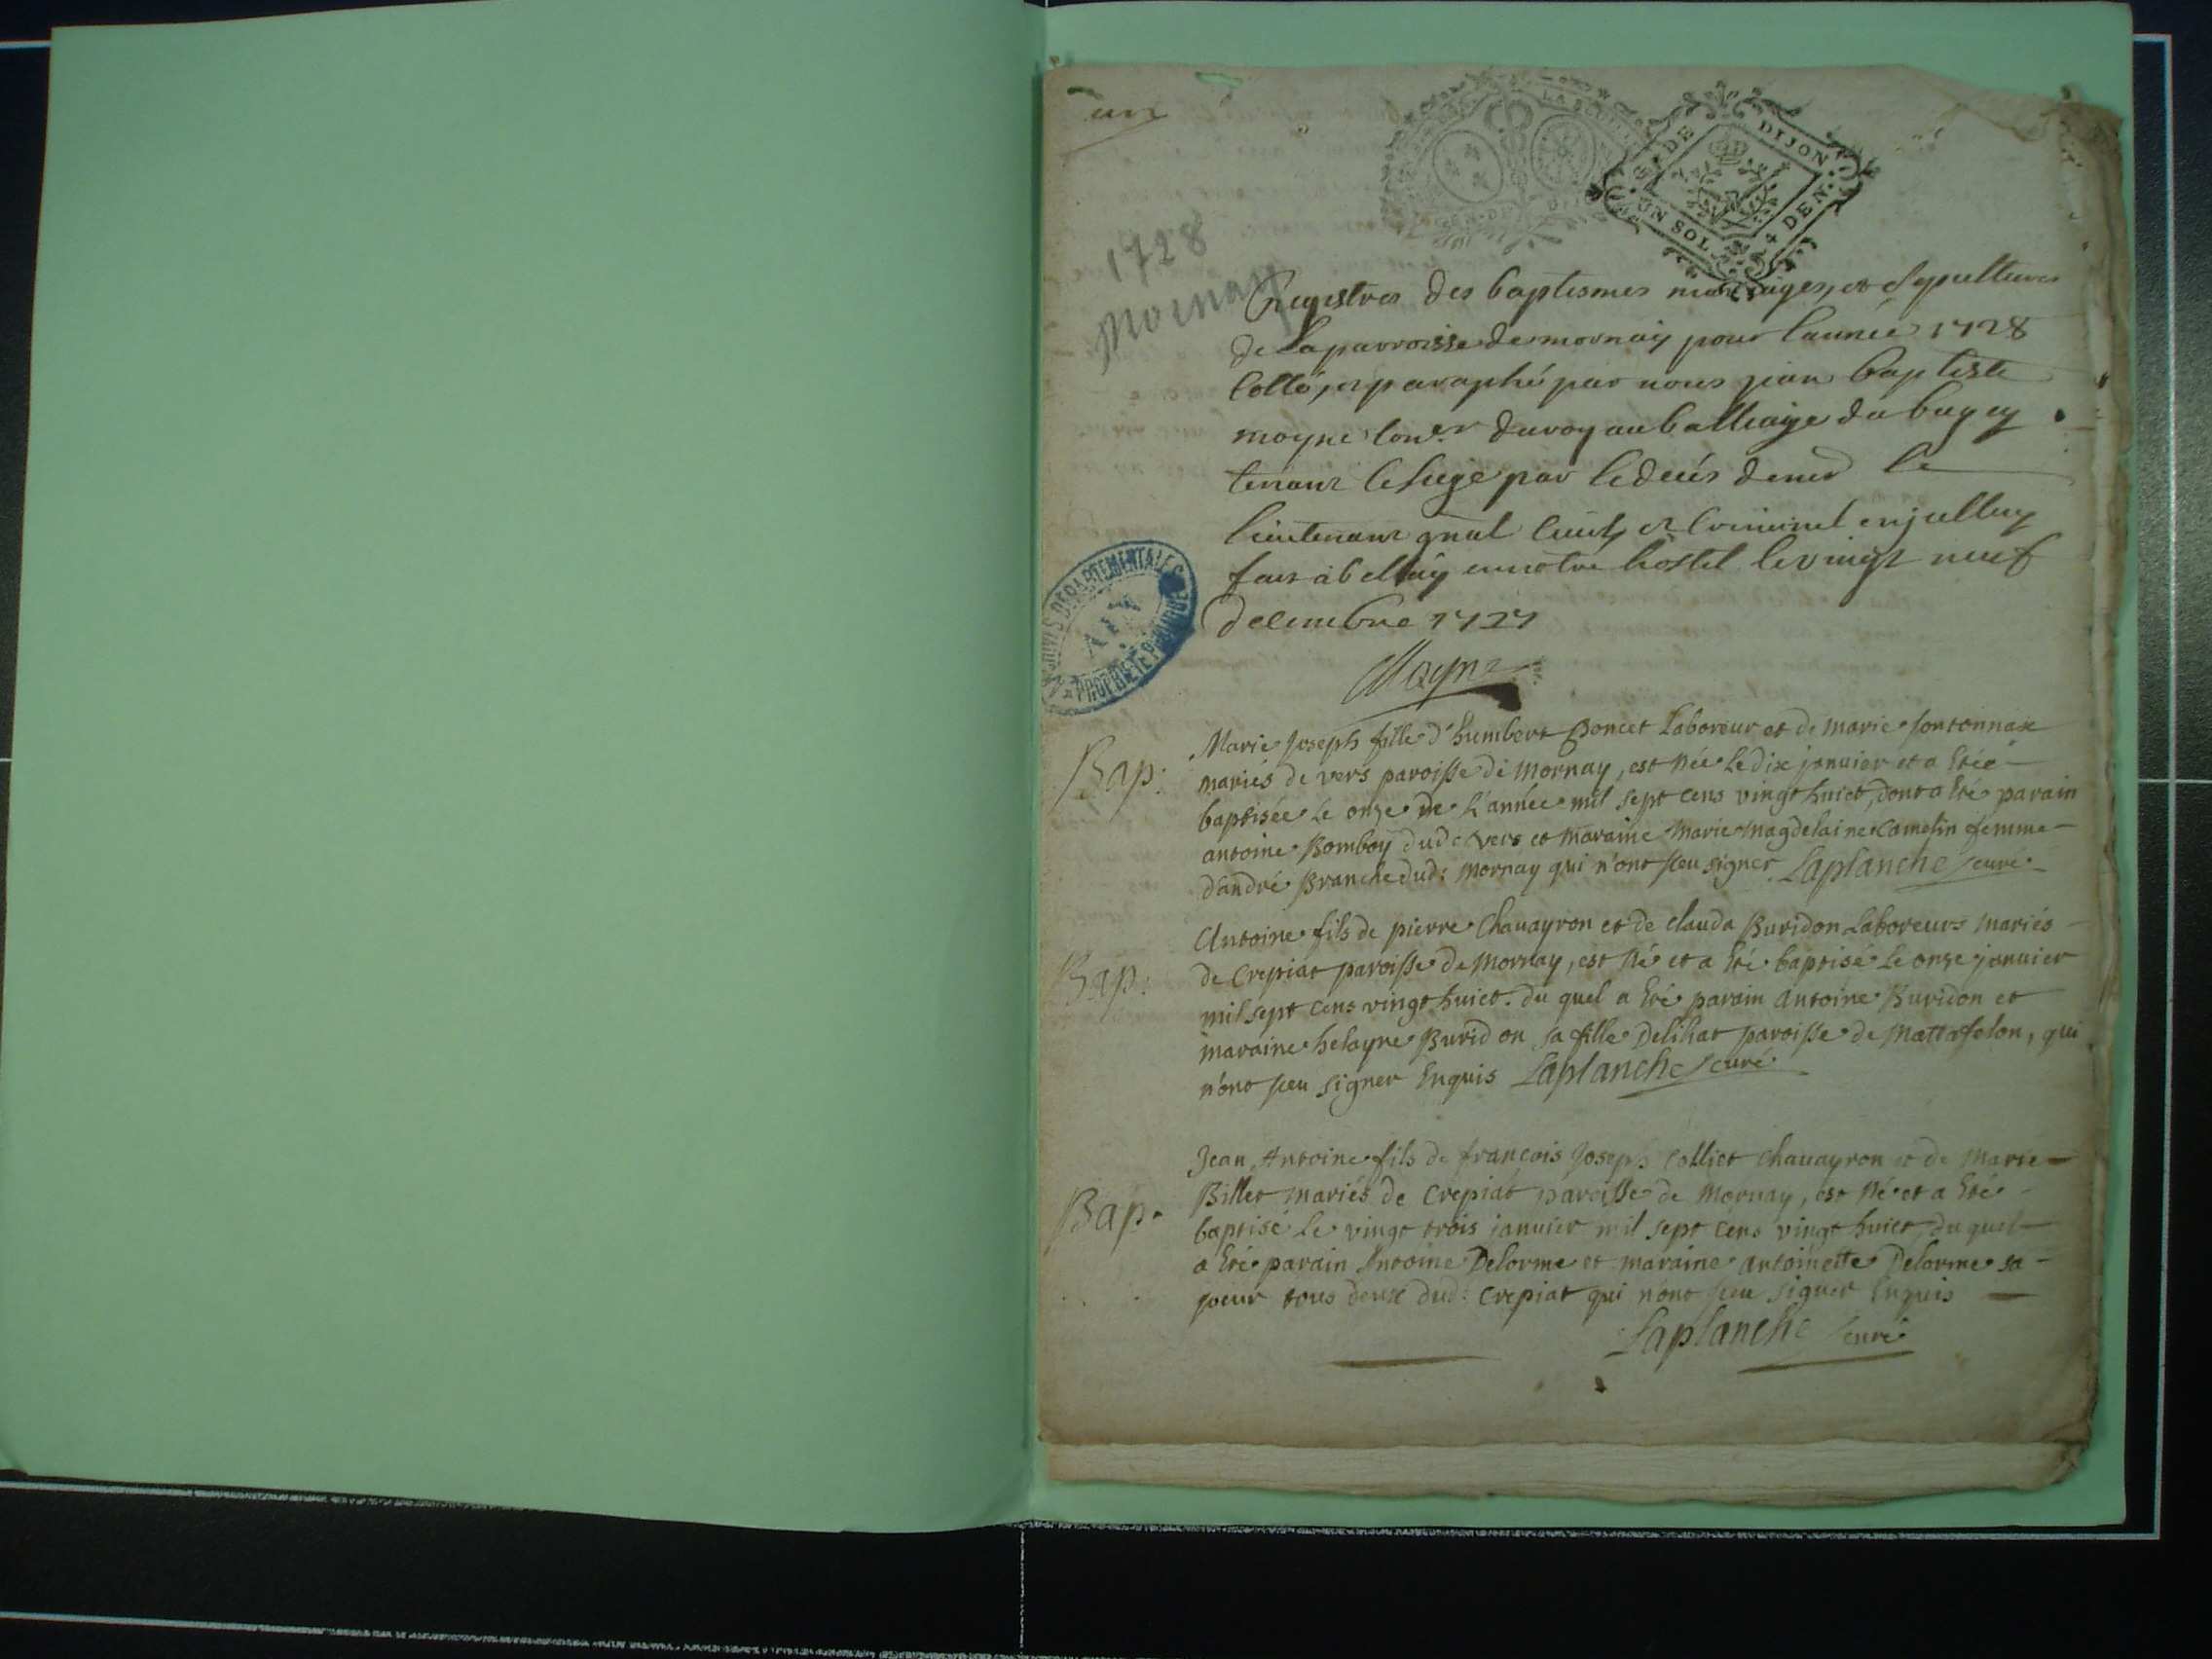 une
1728
Mornay
LA BOURG
GEN. DE DIJON
G. DE DIJON
UN SOL 4 DEN.
Registres des baptesmes mariages, et sepultures
de La parroisse de mornay pour l'année 1728
Cotté, et paraphé par nous jean baptiste
moyne conser du roy au balliage du bugey
tenant le siege par le decés de mr le
lieutenant gnal civil et criminel enjelluy
fait à belley en notre hostel le vingt neuf
decembre 1727
Moyne
ARCHIVES DEPARTEMENTALES
AIN
PROPRIETE PUBLIQUE
Bap:
Marie Joseph fille d'humbert Poncet Laboreur et de marie fontonnax
mariés de vers paroisse de Mornay, est Née Le dix janvier et a Etée
baptisée Le onze de L'année mil sept cens vingt huict, dont a Eté parain
antoine Bomboy dud: vers et maraine Marie Magdelaine Camelin femme
d'andré Branche dud: Mornay qui n'ont sceu signer Laplanche curé
Bap:
Antoine fils de pierre Chauayron et de clauda Buridon Laboreurs mariés
de Crepiat paroisse de Mornay, est Né et a Eté baptisé Le onze januier
mil sept cens vingt huict. du quel a Eté parain Antoine Buridon et
maraine helayne Buridon sa fille De lihat paroisse de Mattafelon, qui
n'ont sceu signer Enquis Laplanche curé
Bap.
Jean Antoine fils de francois Joseph Colliet Chauayron et de Marie
Billet mariés de Crepiat paroisse de Mornay, est Né et a Eté
baptisé Le vingt trois januier mil sept cens vingt huict, du quel
a Eté parain Antoine Delorme et maraine Antoinette Delorme sa
soeur tous deux dud: Crepiat qui n'ont sceu signer Enquis
Laplanche curé